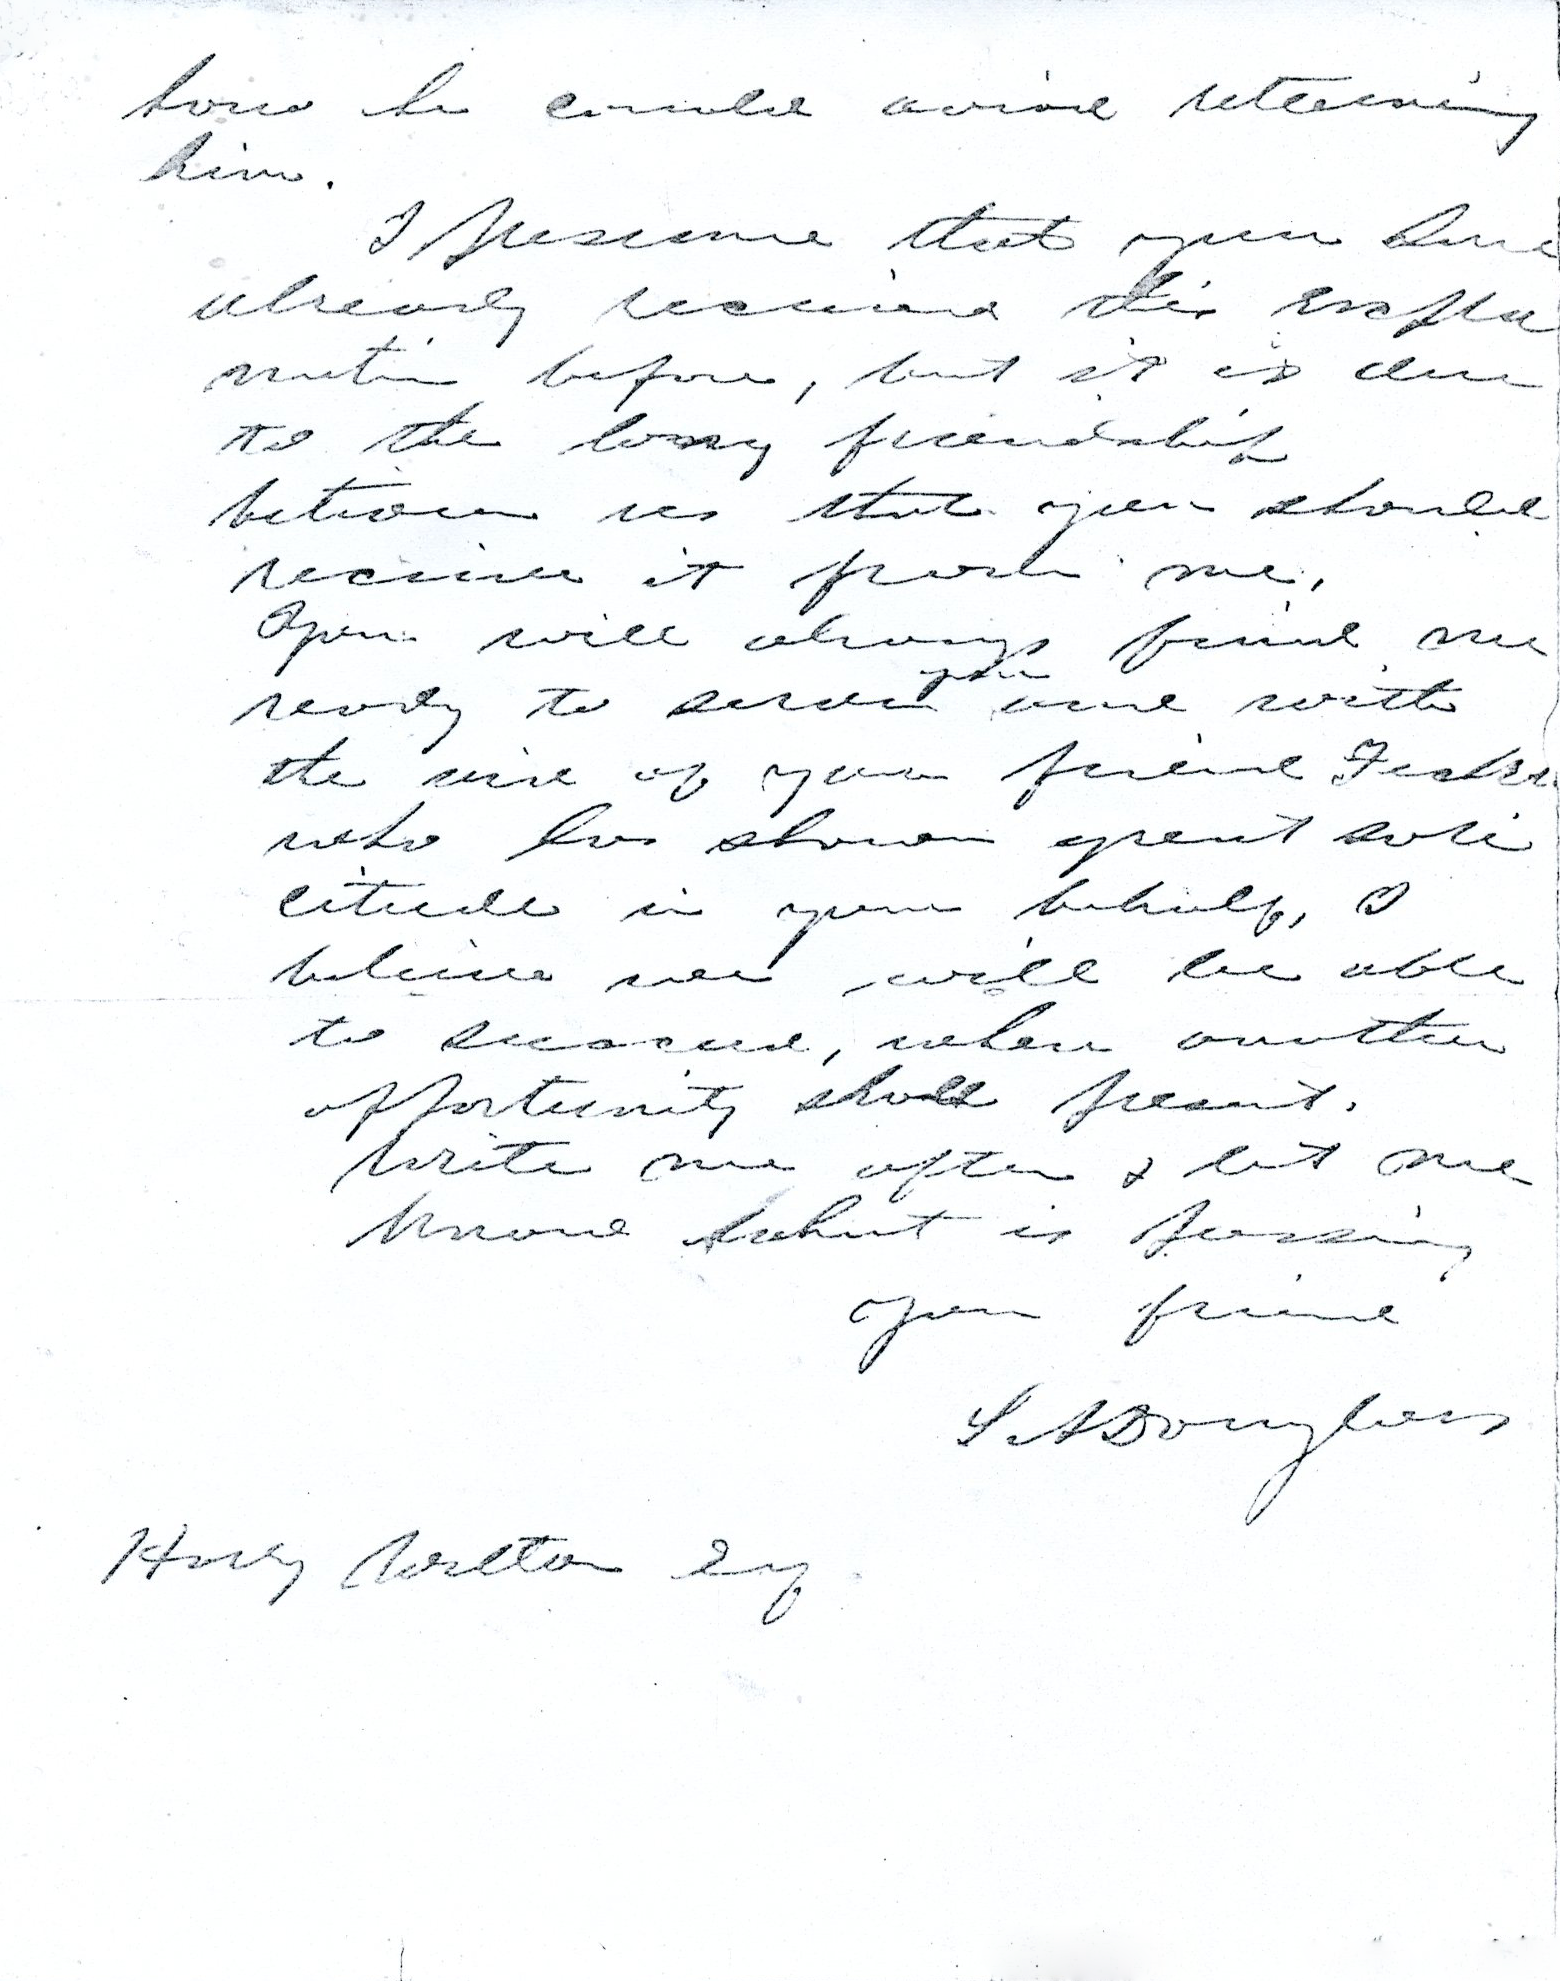 how he could avoid retaining
him.
I presume that you have
already received this expla
nation before, but it is due
to the long friendship
between us that you should
receive it from me.
You will always find me
ready to serve you and with
the aid of your friend
who has shown great soli
citude in your behalf, I
believe we will be able
to succeed, when another
opportunity shall present.
Write me often & let me
know what is passing
your friend
S A Douglass
Hart Wilton Esq